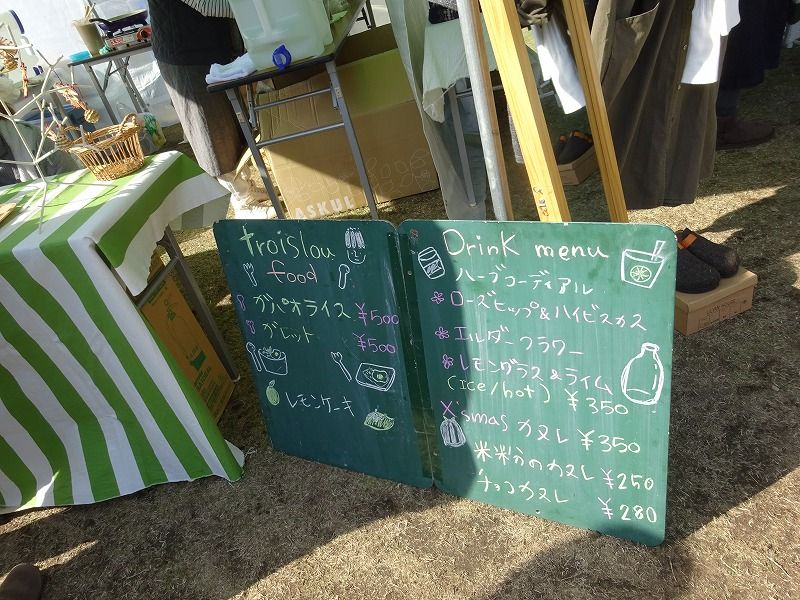 troislou
food
ガパオライス ¥500
ガレット ¥500
レモンケーキ
Drink menu
ハーブコーディアル
ローズヒップ&ハイビスカス
エルダーフラワー
レモングラス&ライム
(ice/hot) ¥350
X'smas カヌレ ¥350
米粉のカヌレ ¥250
チョコカヌレ ¥280
ASKUL